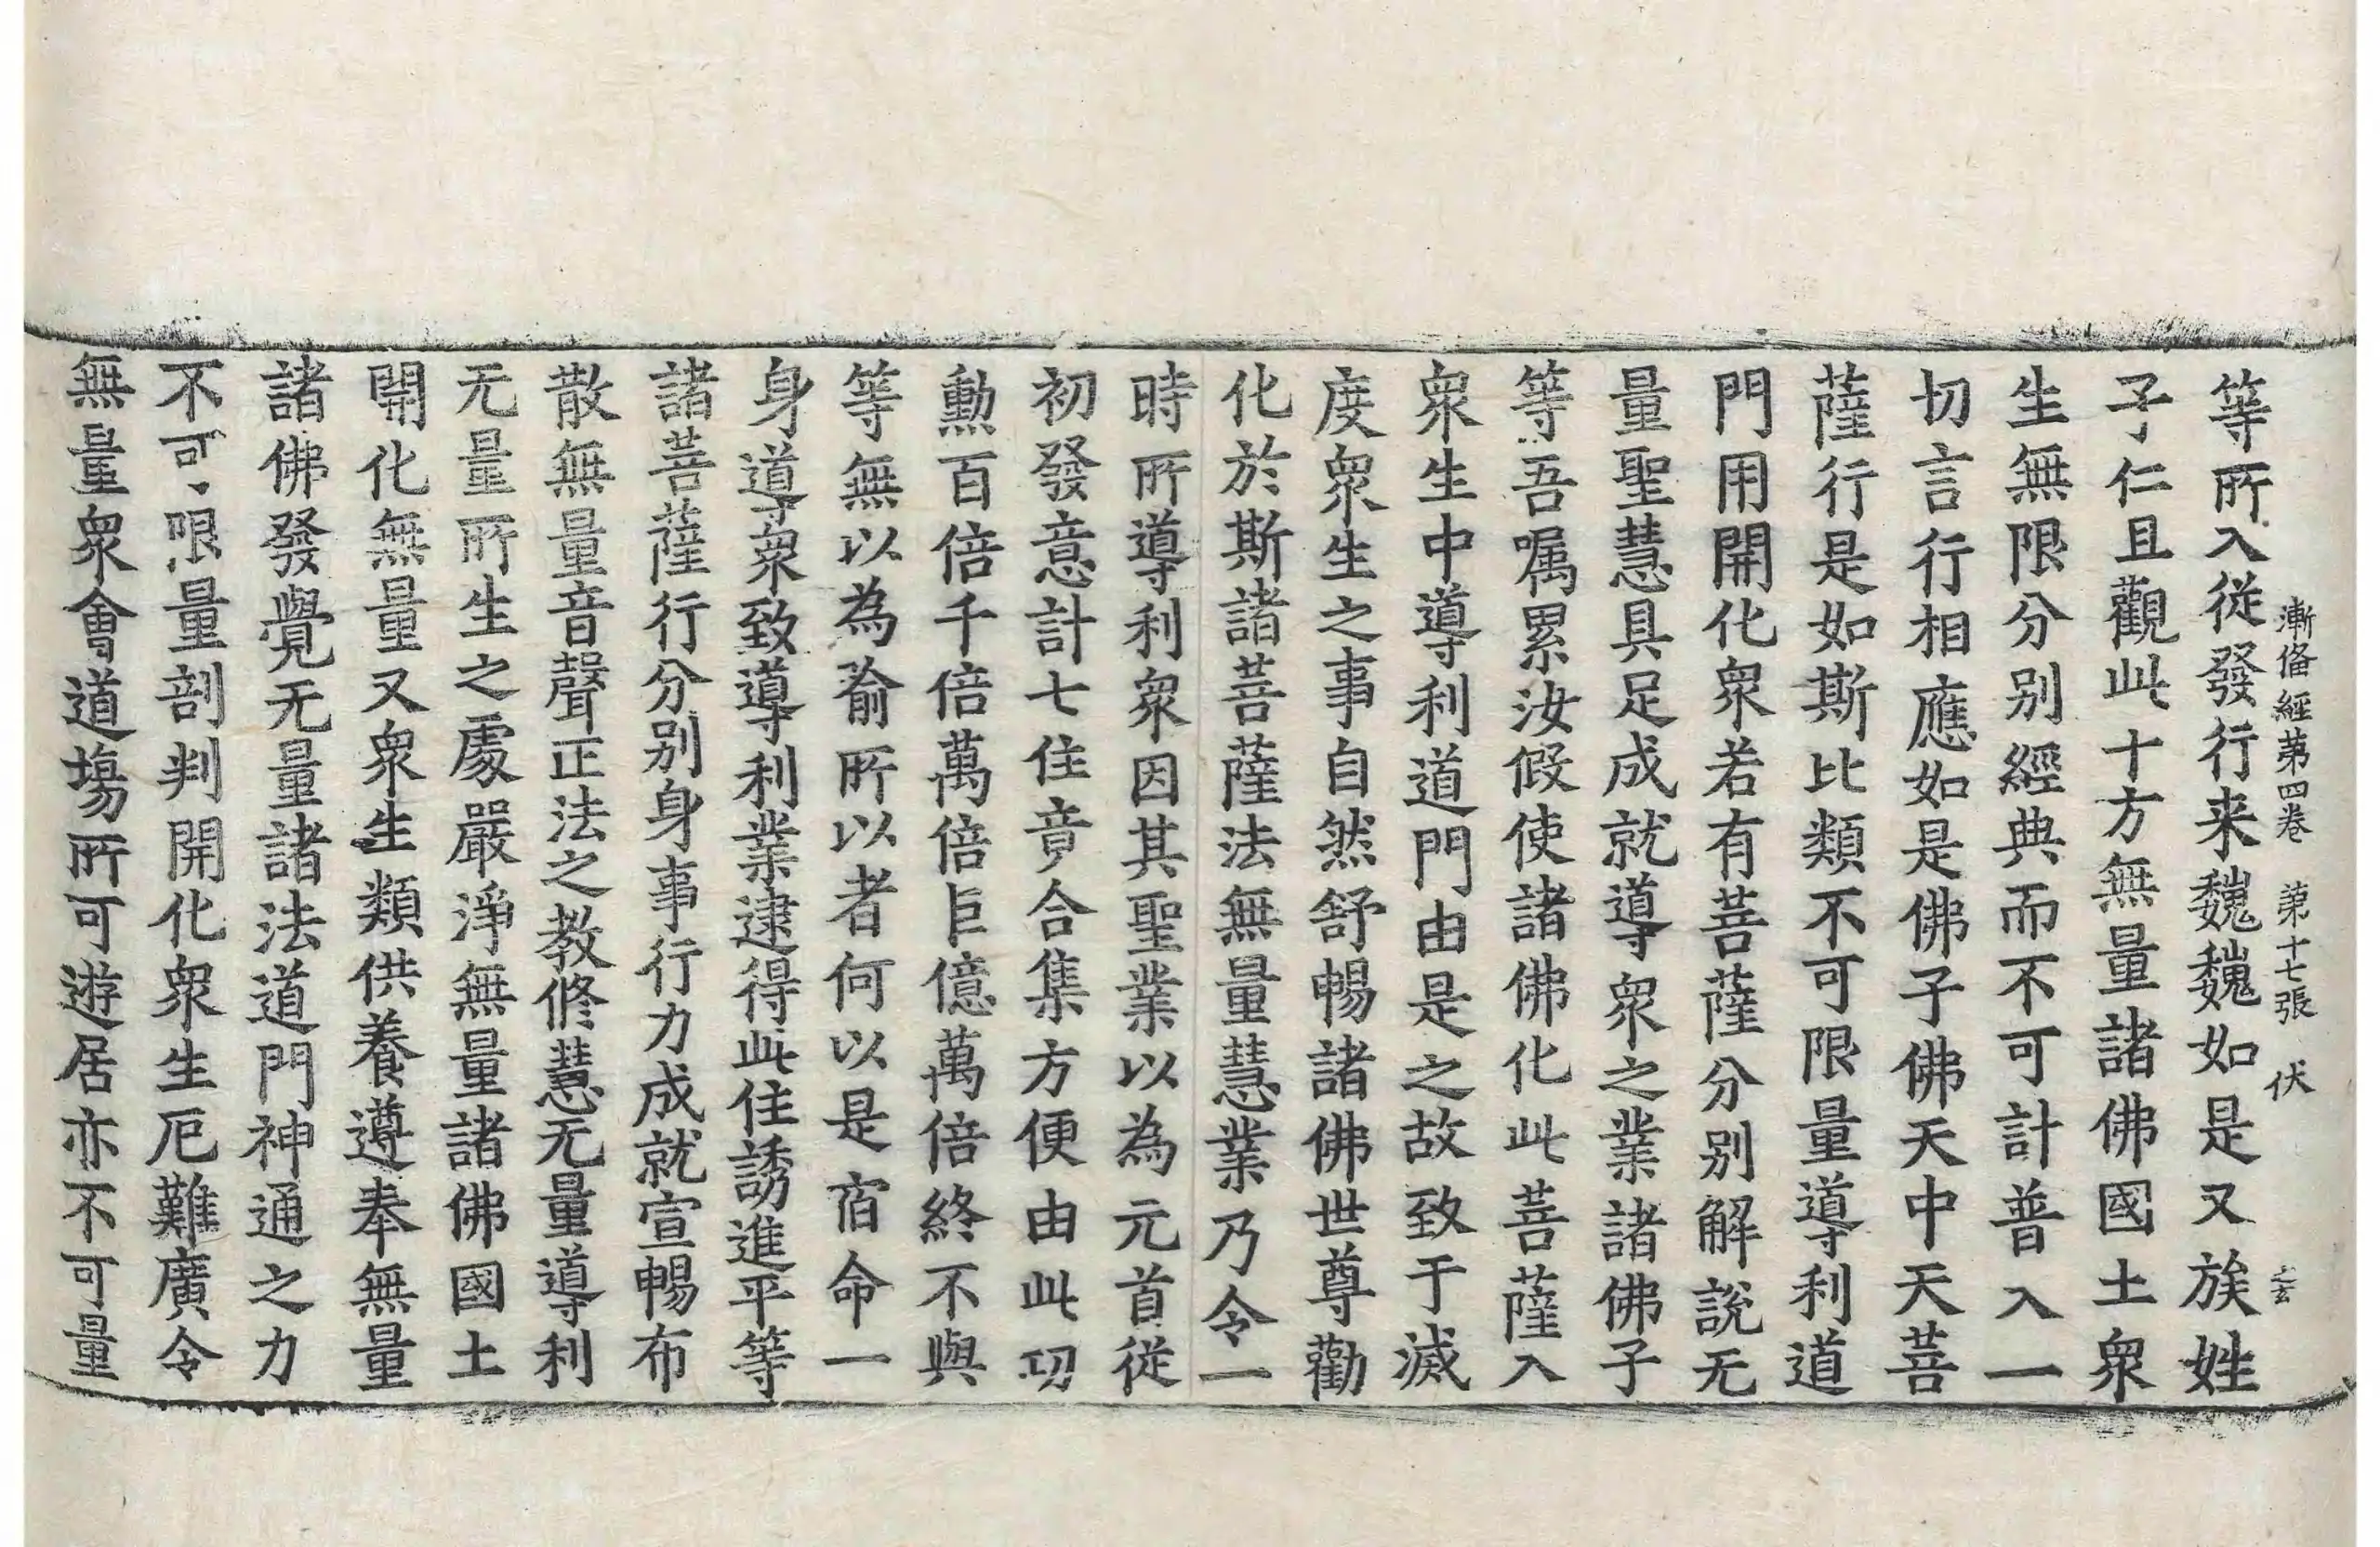 漸俻經第四卷　第十七張　伏
等所入從發行来魏魏如是又族姓
子仁且觀此十方無量諸佛國土衆
生無限分别經典而不可計普入一
切言行相應如是佛子佛天中天菩
薩行是如斯比類不可限量導利道
門用開化衆若有菩薩分别解說无
量聖慧具足成就導衆之業諸佛子
等吾嘱累汝假使諸佛化此菩薩入
衆生中導利道門由是之故致于滅
度衆生之事自然舒暢諸佛世尊勸
化於斯諸菩薩法無量慧業乃令一
時所導利衆因其聖業以為元首從
初發意計七住竟合集方便由此功
勳百倍千倍萬倍巨億萬倍終不與
等無以為喻所以者何以是宿命一
身導衆致導利業逮得此住誘進平等
諸菩薩行分别身事行力成就宣暢布
散無量音聲正法之教修慧无量導利
无量所生之處嚴淨無量諸佛國土
開化無量又衆生類供養遵奉無量
諸佛發覺无量諸法道門神通之力
不可限量剖判開化衆生厄難廣令
無量衆會道塲所可遊居亦不可量